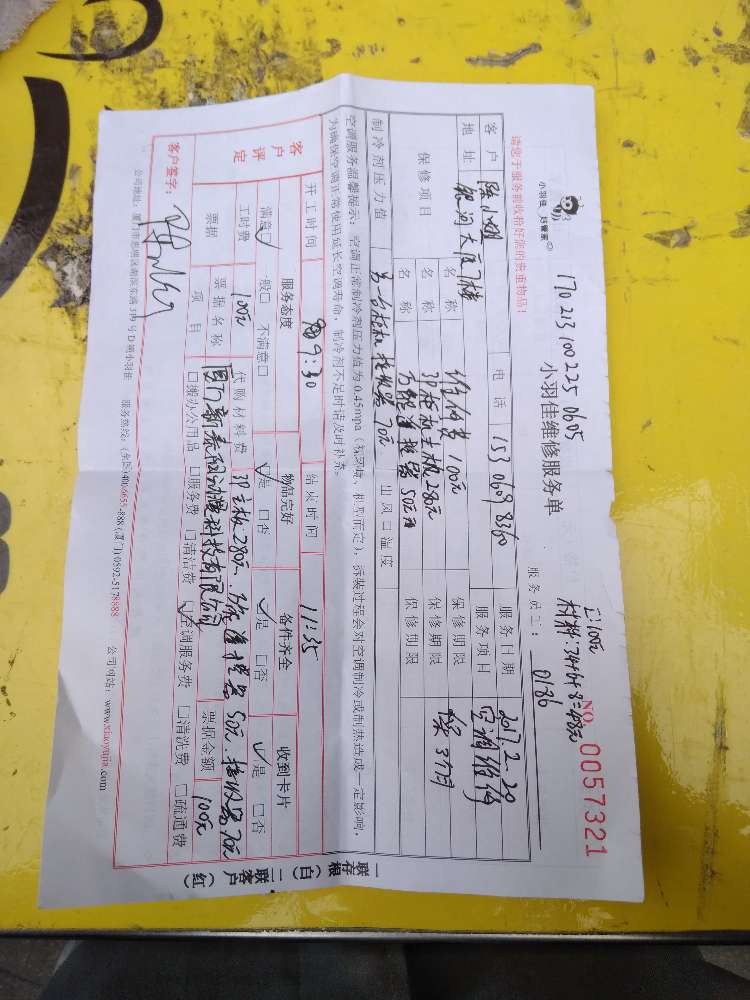 小羽佳
170213100225 0605
小羽佳维修服务单
工:100元
材料:34+6+8=48元
NO. 0057321
请您于服务前收拾好您的贵重物品!
服务员工: 0186
客户 陈小姐 电话 服务日期 2017.2.20
地址 银河大厦7楼 服务项目 空调维修
保修项目 名称 维修费100元 保修期限
名称 3P柜机主板280元 保修期限 保3个月
名称 50元 保修期限
制冷剂压力值 另一台柜机接收器70元 出风口温度
空调服务温馨提示:空调正常制冷剂压力值为0.45mpa(视环境、机型而定),拆装过程会对空调制冷或制热造成一定影响,
为确保空调正常使用延长空调寿命,制冷剂不足时请及时补充。
开工时间 9:30 结束时间 11:35
客户评定 服务态度 物品完好 备件齐全 收到卡片
满意☑ 一般□ 不满意□ ☑是 □否 ☑是 □否 ☑是 □否
工时费 100元 代购材料费 3P主板280元、 50元、接收器70元
票据 票据名称 厦门新泰 科技有限公司 票据金额 100元
项目 □搬办公用品 □服务费 □清洁费 ☑空调服务费 □清洗费 □疏通费
客户签字:
公司地址:厦门市思明区 小羽佳 服务热线:(全国)400-6655-888 (厦门)0592-5178888 公司网站:www.xiaoyujia.com
一联存根(白) 二联客户(红)